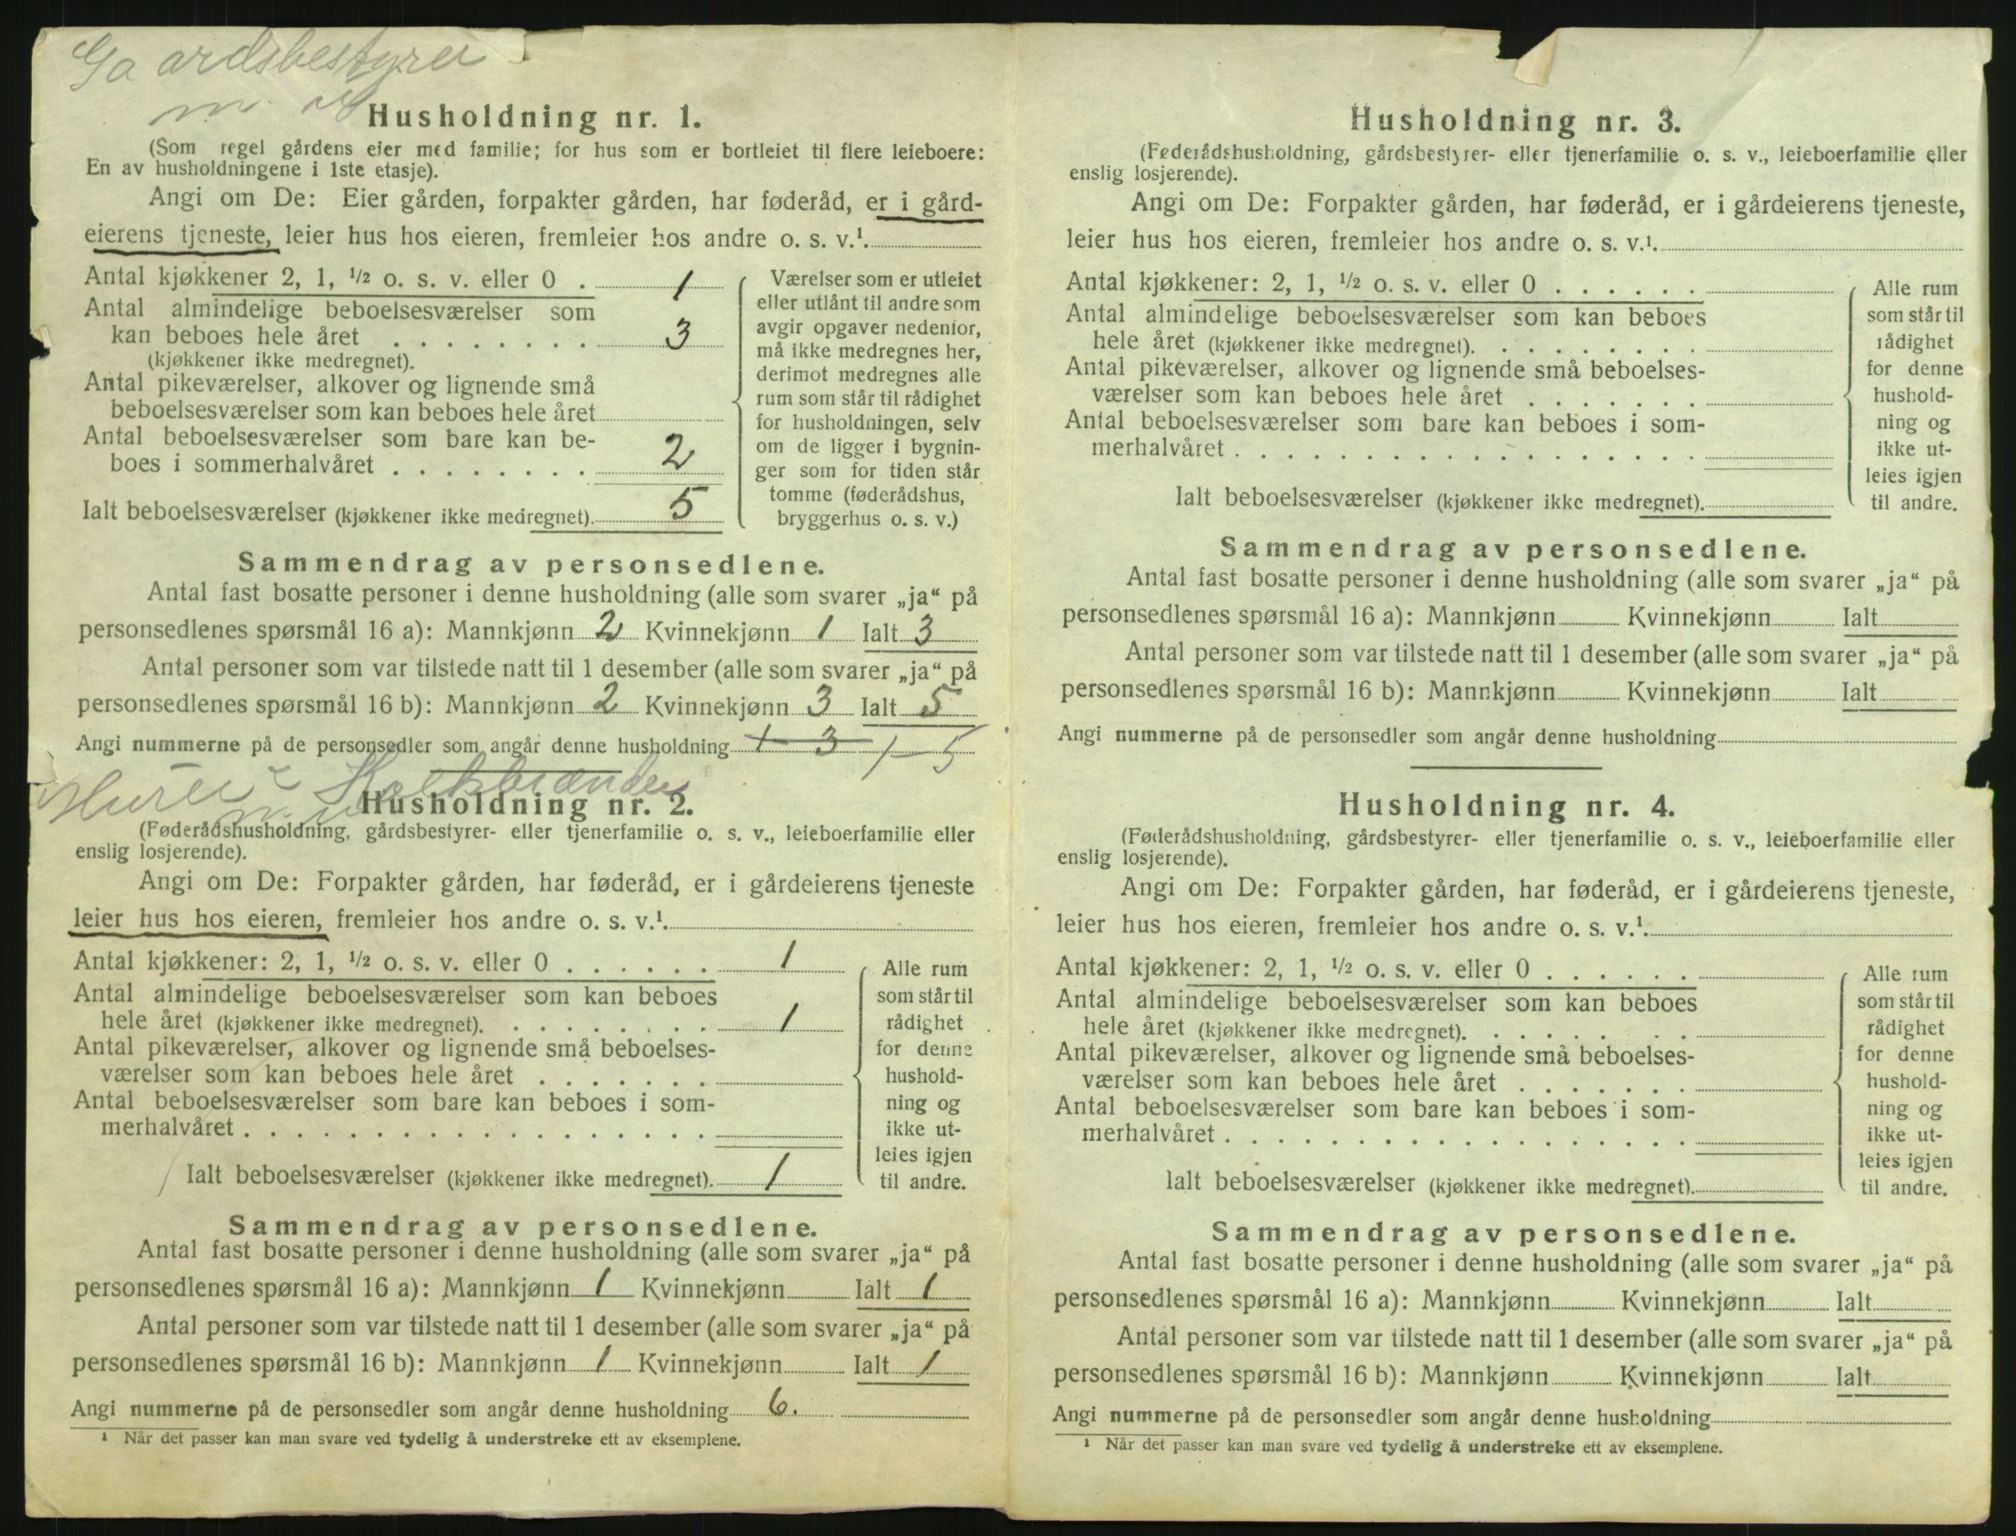 Gaardsbestyrer
m.
Husholdning nr. 1.
(Som regel gårdens eier med familie; for hus som er bortleiet til flere leieboere:
En av husholdningene i 1ste etasje).
Angi om De: Eier gården, forpakter gården, har føderåd, er i gård-
eierens tjeneste, leier hus hos eieren, fremleier hos andre o. s. v.¹.
Antal kjøkkener 2, 1, ½ o. s. v. eller 0 . 1
Antal almindelige beboelsesværelser som
kan beboes hele året . . . . . . . . 3
(kjøkkener ikke medregnet).
Antal pikeværelser, alkover og lignende små
beboelsesværelser som kan beboes hele året
Antal beboelsesværelser som bare kan be-
boes i sommerhalvåret . . . . . . . . 2
Ialt beboelsesværelser (kjøkkener ikke medregnet). 5
Værelser som er utleiet
eller utlånt til andre som
avgir opgaver nedenfor,
må ikke medregnes her,
derimot medregnes alle
rum som står til rådighet
for husholdningen, selv
om de ligger i bygnin-
ger som for tiden står
tomme (føderådshus,
bryggerhus o. s. v.)
Sammendrag av personsedlene.
Antal fast bosatte personer i denne husholdning (alle som svarer „ja“ på
personsedlenes spørsmål 16 a): Mannkjønn 2 Kvinnekjønn 1 Ialt 3
Antal personer som var tilstede natt til 1 desember (alle som svarer „ja“ på
personsedlenes spørsmål 16 b): Mannkjønn 2 Kvinnekjønn 3 Ialt 5
Angi nummerne på de personsedler som angår denne husholdning 1 - 3 1-5
Husholdning nr. 2.
(Føderådshusholdning, gårdsbestyrer- eller tjenerfamilie o. s. v., leieboerfamilie eller
enslig losjerende).
Angi om De: Forpakter gården, har føderåd, er i gårdeierens tjeneste
leier hus hos eieren, fremleier hos andre o. s. v.¹.
Antal kjøkkener: 2, 1, ½ o. s. v. eller 0 . . . . . . 1
Antal almindelige beboelsesværelser som kan beboes
hele året (kjøkkener ikke medregnet). . . . . . . . . 1
Antal pikeværelser, alkover og lignende små beboelses-
værelser som kan beboes hele året . . . . . . .
Antal beboelsesværelser som bare kan beboes i som-
merhalvåret . . . . . . . . . . . . . . . . . .
Ialt beboelsesværelser (kjøkkener ikke medregnet). 1
Alle rum
som står til
rådighet
for denne
hushold-
ning og
ikke ut-
leies igjen
til andre.
Sammendrag av personsedlene.
Antal fast bosatte personer i denne husholdning (alle som svarer „ja“ på
personsedlenes spørsmål 16 a): Mannkjønn 1 Kvinnekjønn Ialt 1
Antal personer som var tilstede natt til 1 desember (alle som svarer „ja“ på
personsedlenes spørsmål 16 b): Mannkjønn 1 Kvinnekjønn Ialt 1
Angi nummerne på de personsedler som angår denne husholdning 6.
¹ Når det passer kan man svare ved tydelig å understreke ett av eksemplene.
Husholdning nr. 3.
(Føderådshusholdning, gårdsbestyrer- eller tjenerfamilie o. s. v., leieboerfamilie eller
enslig losjerende).
Angi om De: Forpakter gården, har føderåd, er i gårdeierens tjeneste,
leier hus hos eieren, fremleier hos andre o. s. v.¹.
Antal kjøkkener: 2, 1, ½ o. s. v. eller 0 . . . . . .
Antal almindelige beboelsesværelser som kan beboes
hele året (kjøkkener ikke medregnet). . . . . . . . .
Antal pikeværelser, alkover og lignende små beboelses-
værelser som kan beboes hele året . . . . . . .
Antal beboelsesværelser som bare kan beboes i som-
merhalvåret . . . . . . . . . . . . . . . . . .
Ialt beboelsesværelser (kjøkkener ikke medregnet).
Alle rum
som står til
rådighet
for denne
hushold-
ning og
ikke ut-
leies igjen
til andre.
Sammendrag av personsedlene.
Antal fast bosatte personer i denne husholdning (alle som svarer „ja“ på
personsedlenes spørsmål 16 a): Mannkjønn Kvinnekjønn Ialt
Antal personer som var tilstede natt til 1 desember (alle som svarer „ja“ på
personsedlenes spørsmål 16 b): Mannkjønn Kvinnekjønn Ialt
Angi nummerne på de personsedler som angår denne husholdning
Husholdning nr. 4.
(Føderådshusholdning, gårdsbestyrer- eller tjenerfamilie o. s. v., leieboerfamilie eller
enslig losjerende).
Angi om De: Forpakter gården, har føderåd, er i gårdeierens tjeneste,
leier hus hos eieren, fremleier hos andre o. s. v.¹.
Antal kjøkkener: 2, 1, ½ o. s. v. eller 0 . . . . . .
Antal almindelige beboelsesværelser som kan beboes
hele året (kjøkkener ikke medregnet). . . . . . . . .
Antal pikeværelser, alkover og lignende små beboelses-
værelser som kan beboes hele året . . . . . . .
Antal beboelsesværelser som bare kan beboes i som-
merhalvåret . . . . . . . . . . . . . . . . . .
Ialt beboelsesværelser (kjøkkener ikke medregnet).
Alle rum
som står til
rådighet
for denne
hushold-
ning og
ikke ut-
leies igjen
til andre.
Sammendrag av personsedlene.
Antal fast bosatte personer i denne husholdning (alle som svarer „ja“ på
personsedlenes spørsmål 16 a): Mannkjønn Kvinnekjønn Ialt
Antal personer som var tilstede natt til 1 desember (alle som svarer „ja“ på
personsedlenes spørsmål 16 b): Mannkjønn Kvinnekjønn Ialt
Angi nummerne på de personsedler som angår denne husholdning
¹ Når det passer kan man svare ved tydelig å understreke ett av eksemplene.